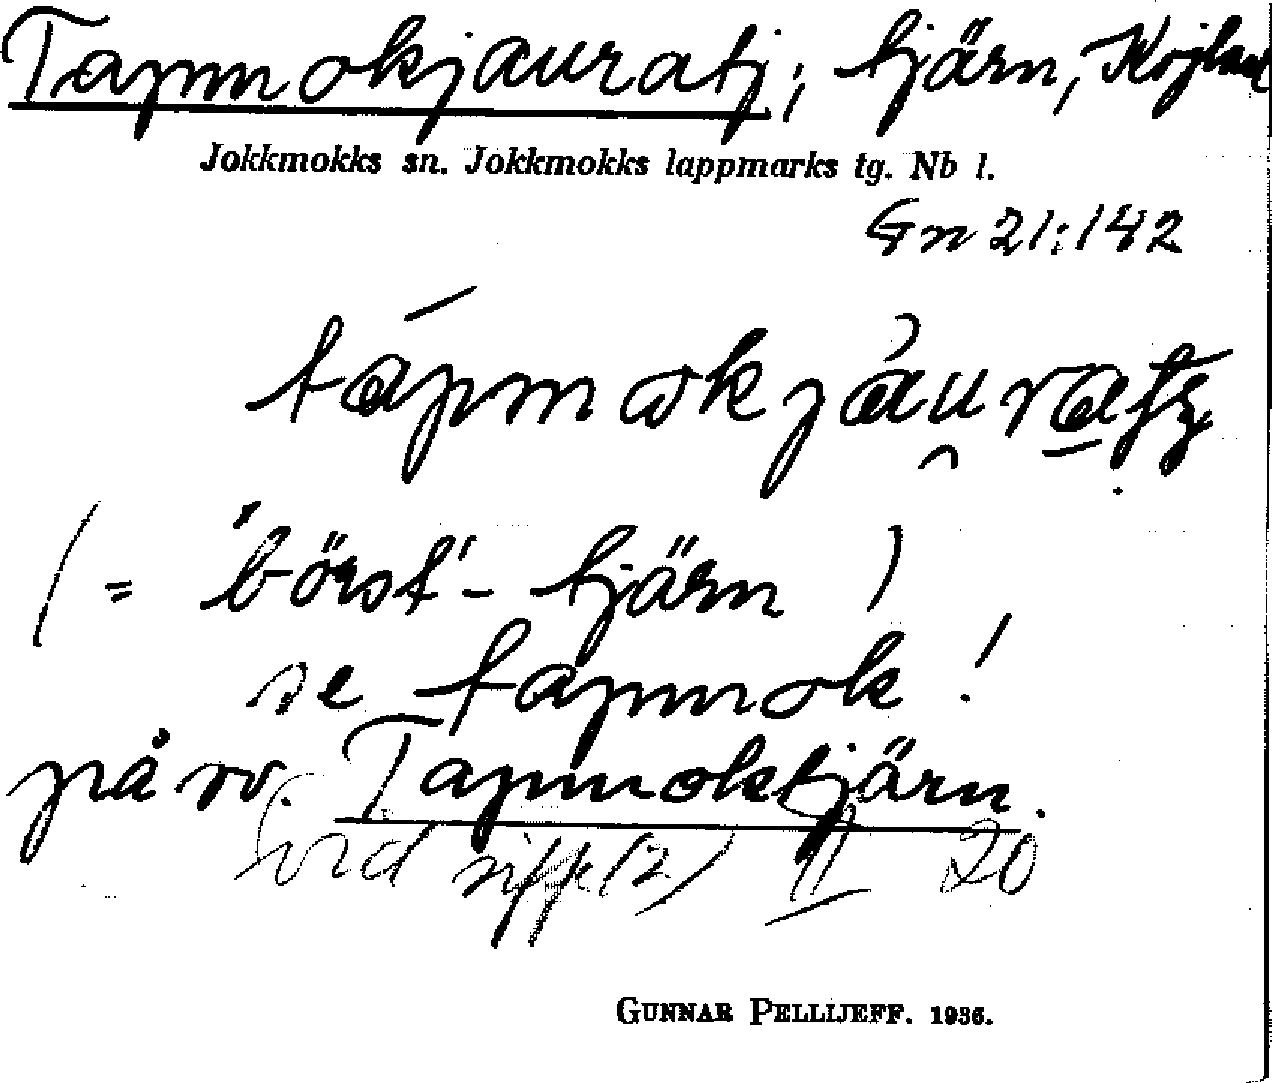 Tapmokjauratj; tjärn,
Jokkmokks sn. Jokkmokks lappmarks tg. Nb l.
Gn 21:142
tápmokjáuratj
(= 'börst'- tjärn)
se tapmok!
på sv. Tapmoktjärn.
20
GUNNAR PELLIJEFF. 1936.